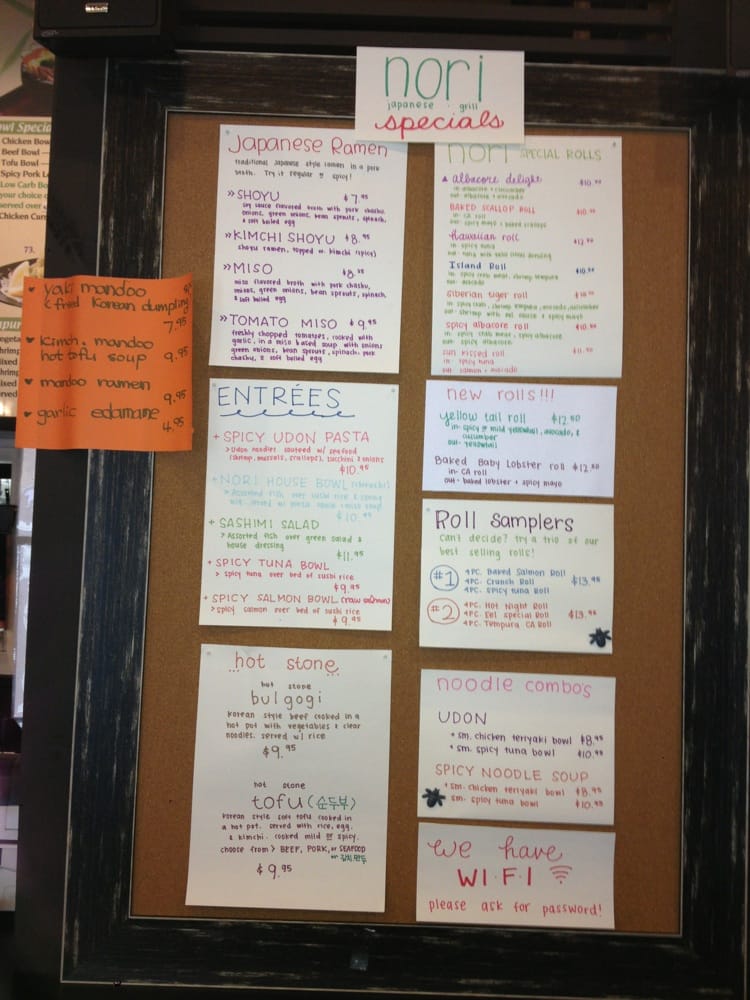 nori
japanese grill
specials
Japanese Ramen
traditional Japanese style ramen in a pork
broth. Try it regular or spicy!
» SHOYU $7.95
soy sauce flavored broth with pork chashu,
onions, green onions, bean sprouts, spinach,
& soft boiled egg
» KIMCHI SHOYU $8.95
shoyu ramen, topped w. kimchi (spicy)
» MISO
miso flavored broth with pork chashu,
onions, green onions, bean sprouts, spinach,
& soft boiled egg
» TOMATO MISO $9.95
freshly chopped tomatoes, cooked with
garlic, in a miso based soup with onions
green onions, bean sprouts, spinach, pork
chashu, & soft boiled egg
nori SPECIAL ROLLS
albacore delight $10.95
in- albacore + cucumber
out- albacore + avocado
BAKED SCALLOP ROLL $10.95
in- CA roll
out- spicy mayo + baked scallops
Hawaiian roll $12.95
in- spicy tuna
Island Roll $10.95
in- spicy crab meat, shrimp tempura
Siberian tiger roll $10.95
in- spicy crab, shrimp tempura, avocado, cucumber
out- shrimp with eel sauce + spicy mayo
spicy albacore roll $10.95
in- spicy crab meat, spicy albacore
out- spicy albacore
sun kissed roll $11.95
in- spicy tuna
out- salmon + avocado
ENTRÉES
+ SPICY UDON PASTA
> Udon noodles sauteed w/ seafood
(shrimp, mussels, scallops), zucchini & onions
$10.95
+ NORI HOUSE BOWL
> Assorted fish over sushi rice & spring
$10.95
+ SASHIMI SALAD
> Assorted fish over green salad &
house dressing
$11.95
+ SPICY TUNA BOWL
> spicy tuna over bed of sushi rice
$9.95
+ SPICY SALMON BOWL (raw salmon)
> spicy salmon over bed of sushi rice
$9.95
new rolls!!!
yellow tail roll $12.50
in- spicy or mild yellowtail, avocado, &
cucumber
out- yellowtail
Baked Baby Lobster roll $12.50
in- CA roll
out- baked lobster + spicy mayo
Roll samplers
can't decide? try a trio of our
best selling rolls!
#1 4PC. Baked Salmon Roll
4PC. Crunch Roll $13.95
4PC. Spicy tuna Roll
#2 4PC. Hot Night Roll
4PC. Eel special Roll $13.95
4PC. Tempura CA Roll
hot stone
hot stone
bulgogi
Korean style beef cooked in a
hot pot with vegetables & clear
noodles. served w/ rice
$9.95
hot stone
tofu (순두부)
Korean style soft tofu cooked in
a hot pot. served with rice, egg,
& kimchi. cooked mild or spicy.
choose from > BEEF, PORK, or SEAFOOD
or 김치만두
$9.95
noodle combo's
UDON
* sm. chicken teriyaki bowl $8.95
* sm. spicy tuna bowl $10.95
SPICY NOODLE SOUP
* sm. chicken teriyaki bowl $8.95
sm. spicy tuna bowl $10.95
we have
WI-FI
please ask for password!
yaki mandoo
& fried Korean dumpling
7.95
kimchi mandoo
hot tofu soup 9.95
mandoo ramen
9.95
garlic edamame
4.95
Bowl Special
Chicken Bowl
Beef Bowl
Tofu Bowl
Spicy Pork
Low Carb
your choice
served over
Chicken
73.